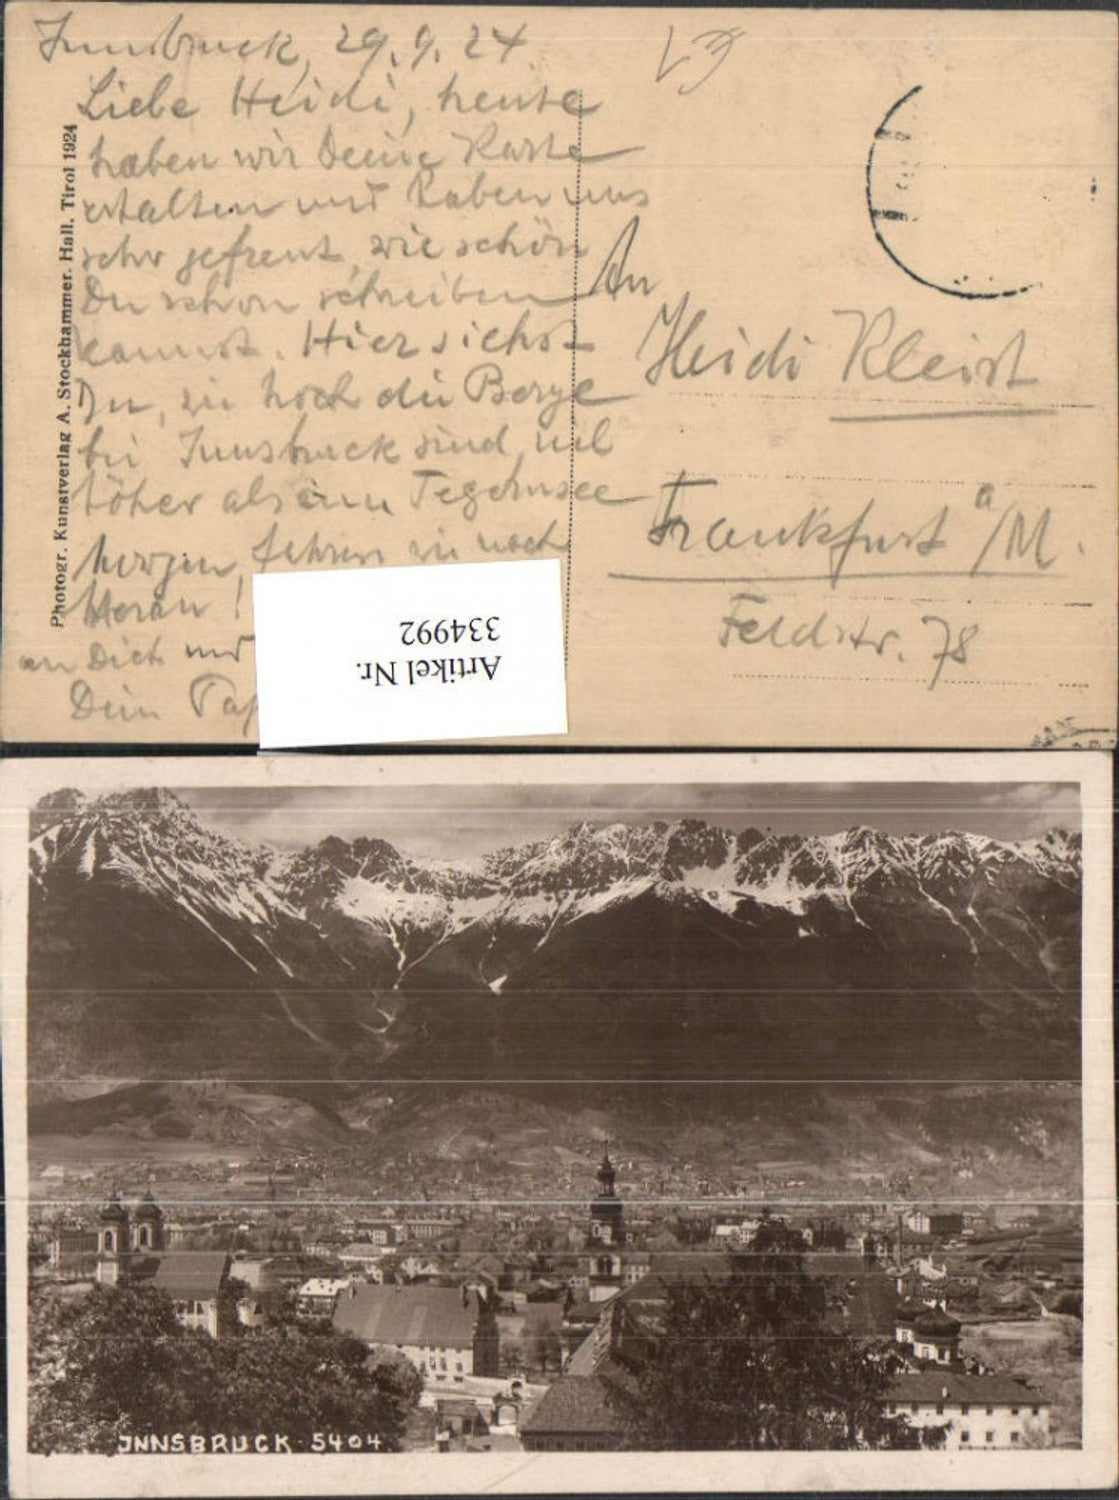 Innsbruck, 29.9.24.
Liebe Heidi, heute
haben wir Deine Karte
erhalten und haben uns
sehr gefreut, wie schön
Du schon schreiben
kannst. Hier siehst
Du, wie hoch die Berge
bei Innsbruck sind, viel
höher als am Tegernsee
Morgen fahren wir nach
Meran!
an Dich und
Dein
An
Heidi Kleist
Frankfurt a/M.
Feldstr. 78
Photogr. Kunstverlag A. Stockhammer. Hall. Tirol 1924
Artikel Nr.
334992
INNSBRUCK · 5404